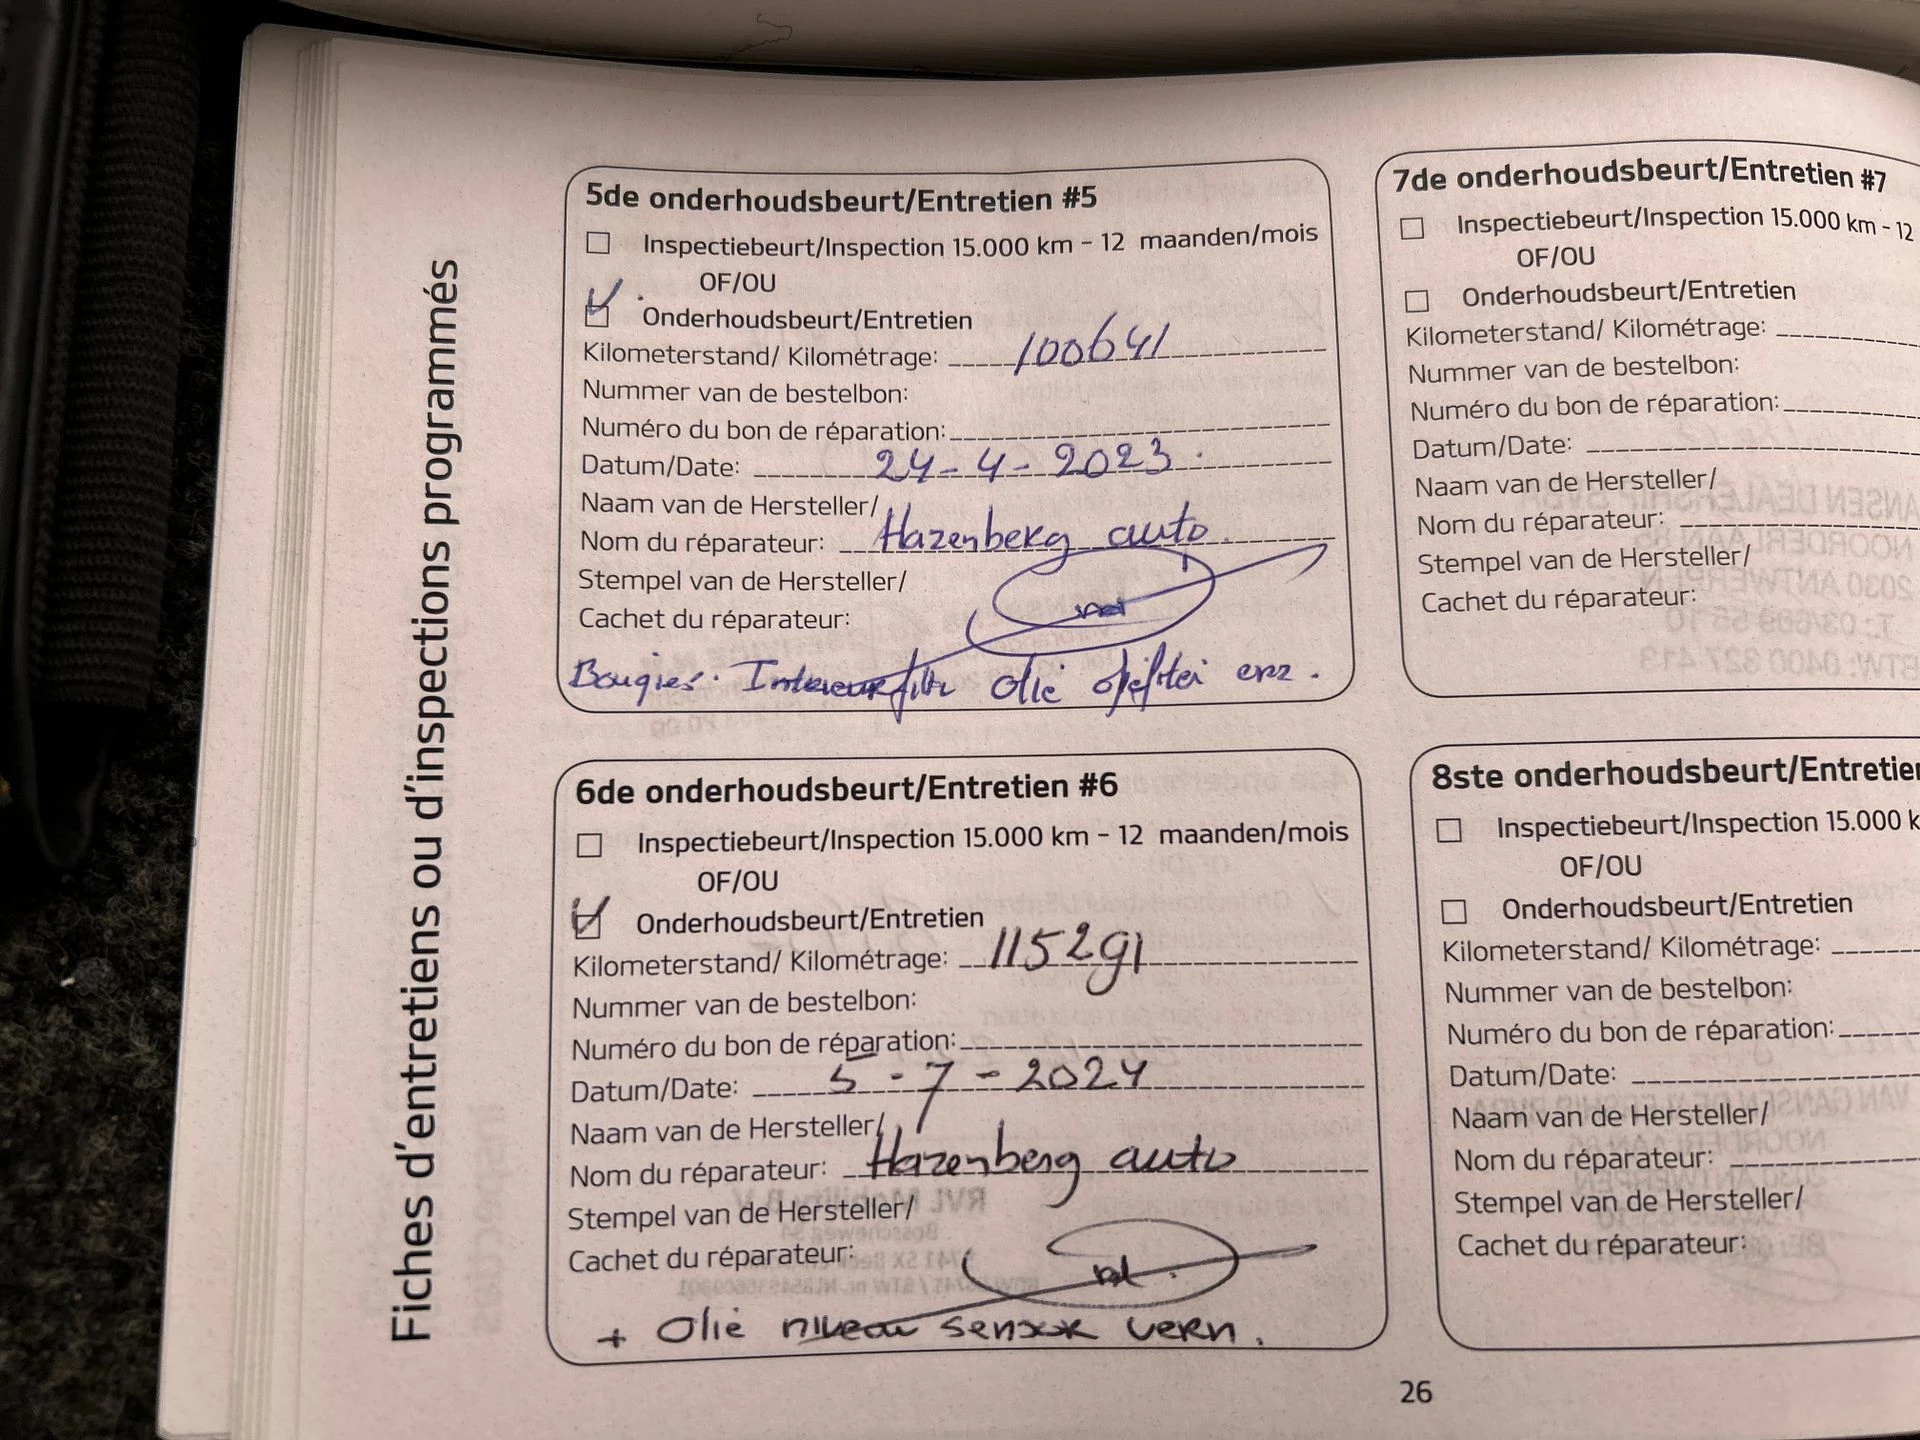 Fiches d'entretiens ou d'inspections programmés
5de onderhoudsbeurt/Entretien #5
Inspectiebeurt/Inspection 15.000 km - 12 maanden/mois
OF/OU
Onderhoudsbeurt/Entretien
Kilometerstand/ Kilométrage: 100641
Nummer van de bestelbon:
Numéro du bon de réparation:
Datum/Date: 24-4-2023
Naam van de Hersteller/
Nom du réparateur: Hazenberg auto
Stempel van de Hersteller/
Cachet du réparateur:
Bougies. Interieurfiltr Olie enz.
6de onderhoudsbeurt/Entretien #6
Inspectiebeurt/Inspection 15.000 km - 12 maanden/mois
OF/OU
Onderhoudsbeurt/Entretien
Kilometerstand/ Kilométrage: 115291
Nummer van de bestelbon:
Numéro du bon de réparation:
Datum/Date: 5-7-2024
Naam van de Hersteller/
Nom du réparateur: Hazenberg auto
Stempel van de Hersteller/
Cachet du réparateur:
+ Olie niveau sensor vern.
7de onderhoudsbeurt/Entretien #7
Inspectiebeurt/Inspection 15.000 km - 12
OF/OU
Onderhoudsbeurt/Entretien
Kilometerstand/ Kilométrage:
Nummer van de bestelbon:
Numéro du bon de réparation:
Datum/Date:
Naam van de Hersteller/
Nom du réparateur:
Stempel van de Hersteller/
Cachet du réparateur:
8ste onderhoudsbeurt/Entretie
Inspectiebeurt/Inspection 15.000 k
OF/OU
Onderhoudsbeurt/Entretien
Kilometerstand/ Kilométrage:
Nummer van de bestelbon:
Numéro du bon de réparation:
Datum/Date:
Naam van de Hersteller/
Nom du réparateur:
Stempel van de Hersteller/
Cachet du réparateur:
26